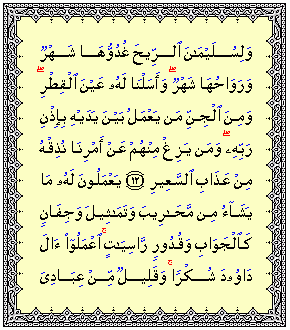 وَلِسُلَيْمَـٰنَ ٱلرِّيحَ غُدُوُّهَا شَهْرٌ
وَرَوَاحُهَا شَهْرٌ ۖ وَأَسَلْنَا لَهُۥ عَيْنَ ٱلْقِطْرِ ۖ
وَمِنَ ٱلْجِنِّ مَن يَعْمَلُ بَيْنَ يَدَيْهِ بِإِذْنِ
رَبِّهِۦ ۖ وَمَن يَزِغْ مِنْهُمْ عَنْ أَمْرِنَا نُذِقْهُ
مِنْ عَذَابِ ٱلسَّعِيرِ ﴿١٢﴾ يَعْمَلُونَ لَهُۥ مَا
يَشَآءُ مِن مَّحَـٰرِيبَ وَتَمَـٰثِيلَ وَجِفَانٍ
كَٱلْجَوَابِ وَقُدُورٍ رَّاسِيَـٰتٍ ۚ ٱعْمَلُوٓا۟ ءَالَ
دَاوُۥدَ شُكْرًا ۚ وَقَلِيلٌ مِّنْ عِبَادِىَ